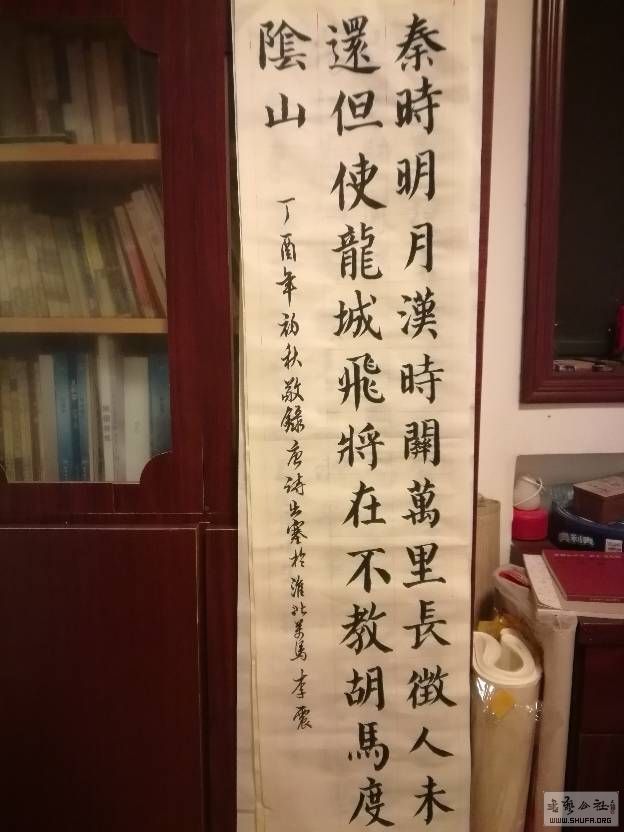 秦時明月漢時關萬里長徵人未
還但使龍城飛將在不教胡馬度
陰山
丁酉年初秋敬錄唐詩出塞於淮北篆馬李震
奥利奥
WWW.SHUFA.ORG